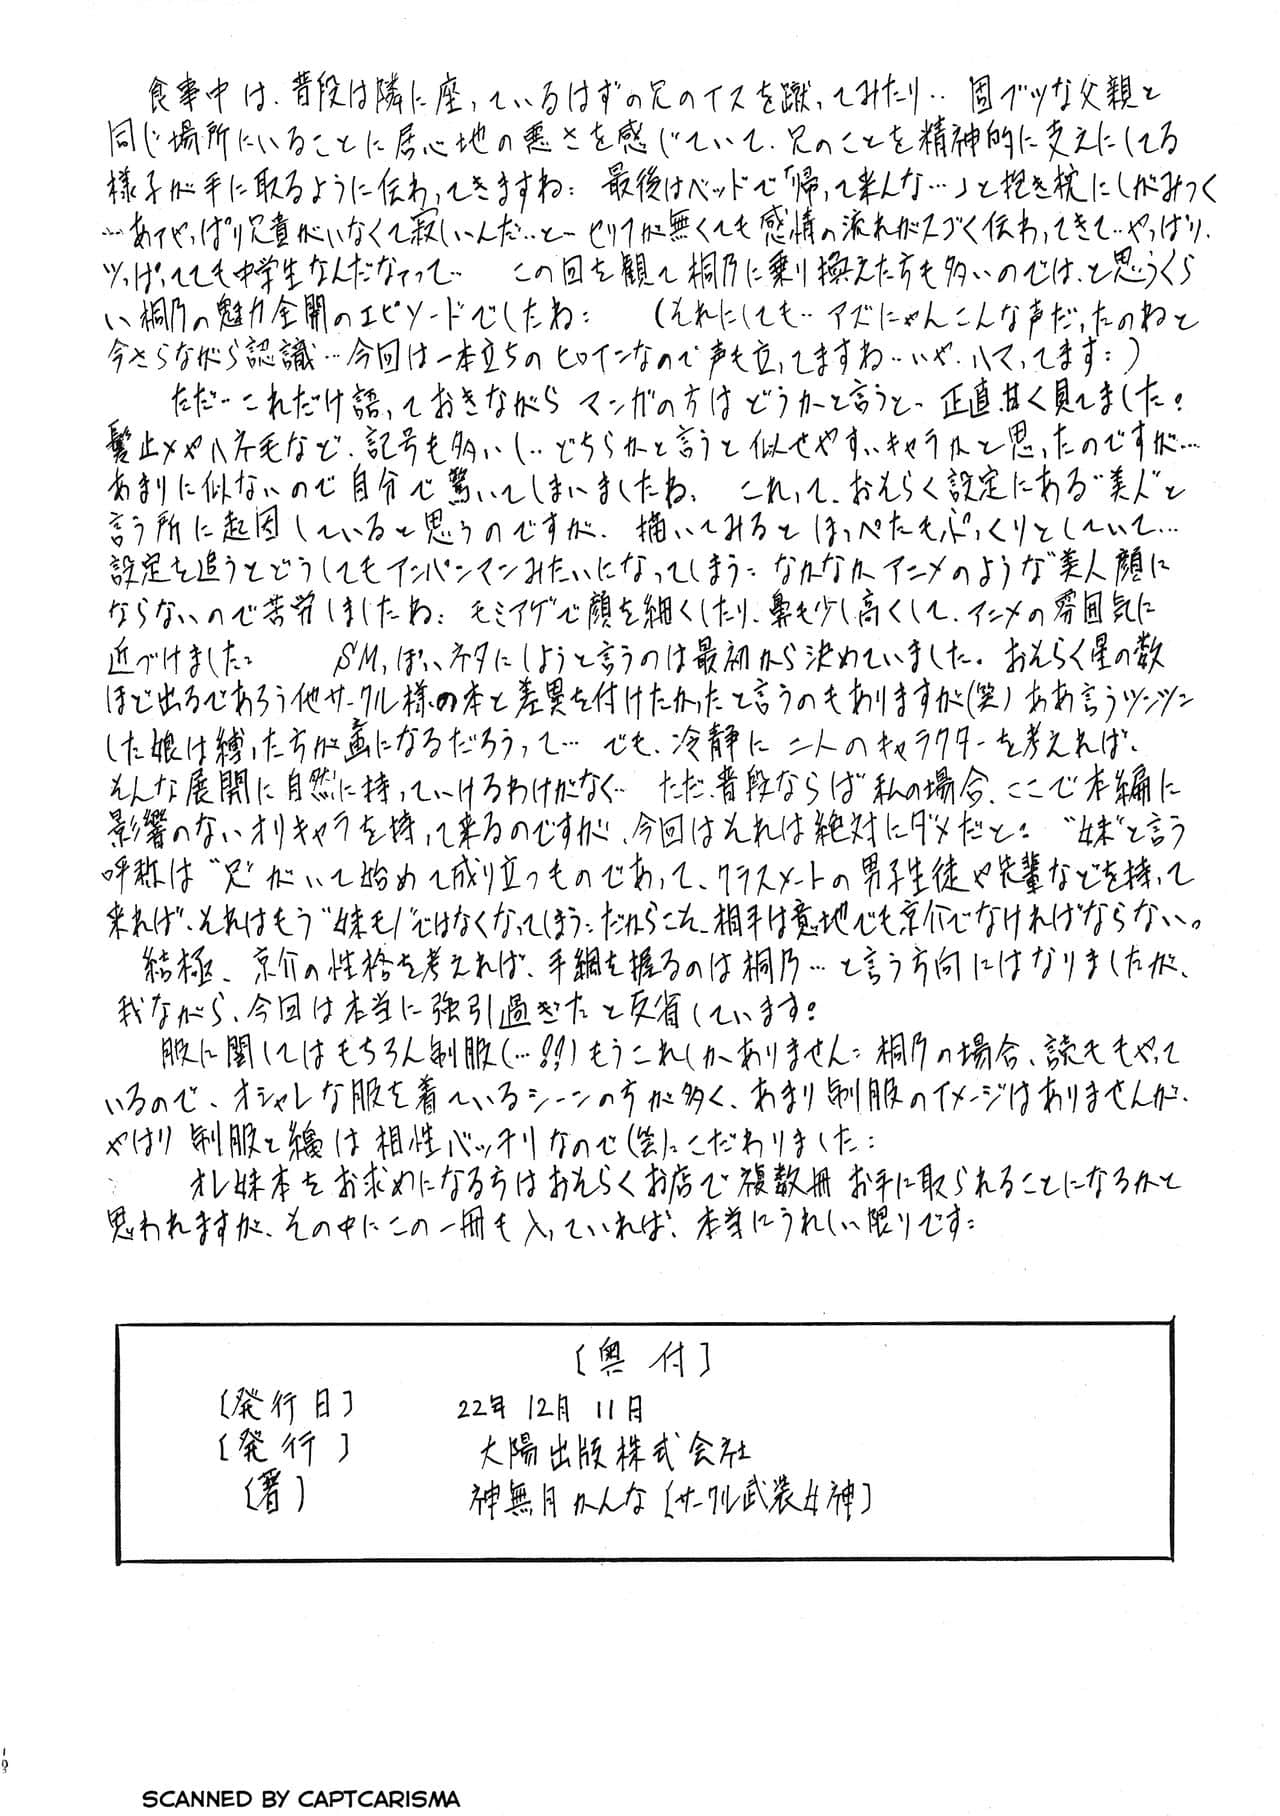 食事中は、普段は隣に座っているはずの兄のイスを蹴ってみたり‥ 固ブツな父親と
同じ場所にいることに居心地の悪さを感じていて、兄のことを精神的に支えにしてる
様子が手に取るように伝わってきますね: 最後はベッドで「帰って来んな…」と抱き枕にしがみつく
…あァやっぱり兄貴がいなくて寂しいんだ‥と― セリフが無くても感情の流れがスゴく伝わってきて‥やっぱり、
ツっぱってても中学生なんだなァって‥ この回を観て桐乃に乗り換えた方も多いのでは、と思うくら
い桐乃の魅力全開のエピソードでしたね: (それにしても‥アズにゃんこんな声だったのねと
今さらながら認識…今回は一本立ちのヒロインなので声も立ってますね‥いや、ハマってます:)
ただ‥これだけ語っておきながら マンガの方はどうかと言うと、正直、甘く見てました。
髪止メやハネ毛など、記号も多いし‥どちらかと言うと似せやすいキャラかと思ったのですが…
あまりに似ないので自分で驚いてしまいましたね、 これって、おそらく設定にある“美人”と
言う所に起因していると思うのですが、描いてみるとほっぺたもぷっくりとしていて…
設定を追うとどうしてもアンパンマンみたいになってしまう: なかなかアニメのような“美人顔に
ならないので苦労しましたね: モミアゲで顔を細くしたり、鼻も少し高くして、アニメの雰囲気に
近づけました: SMっぽいネタにしようと言うのは最初から決めていました。おそらく星の数
ほど出るであろう他サークル様の本と差異を付けたかったと言うのもありますが(笑)ああ言うツンツン
した娘は縛った方が画になるだろうって… でも、冷静に二人のキャラクターを考えれば、
そんな展開に自然に持っていけるわけがなく‥ ただ、普段ならば私の場合、ここで本編に
影響のないオリキャラを持って来るのですが、今回はそれは絶対にダメだと: “妹”と言う
呼称は“兄”がいて始めて成り立つものであって、クラスメートの男子生徒や先輩などを持って
来れば、それはもう“妹モノ”ではなくなってしまう:だからこそ、相手は意地でも京介でなければならない。
結極、京介の性格を考えれば、手綱を握るのは桐乃…と言う方向にはなりましたが、
我ながら、今回は本当に強引過ぎたと反省しています:
服に関してはもちろん制服(…!!)もうこれしかありません: 桐乃の場合、読モもやって
いるので、オシャレな服を着ているシーンの方が多く、あまり制服のイメージはありませんが、
やはり制服と縄は相性バッチリなので(笑)こだわりました:
オレ妹本をお求めになる方はおそらくお店で複数冊お手に取られることになるかと
思われますが、その中にこの一冊も入っていれば、本当にうれしい限りです:
[奥付]
[発行日] 22年12月11日
[発行] 大陽出版株式会社
[著] 神無月かんな[サークル武装女神]
SCANNED BY CAPTCARISMA